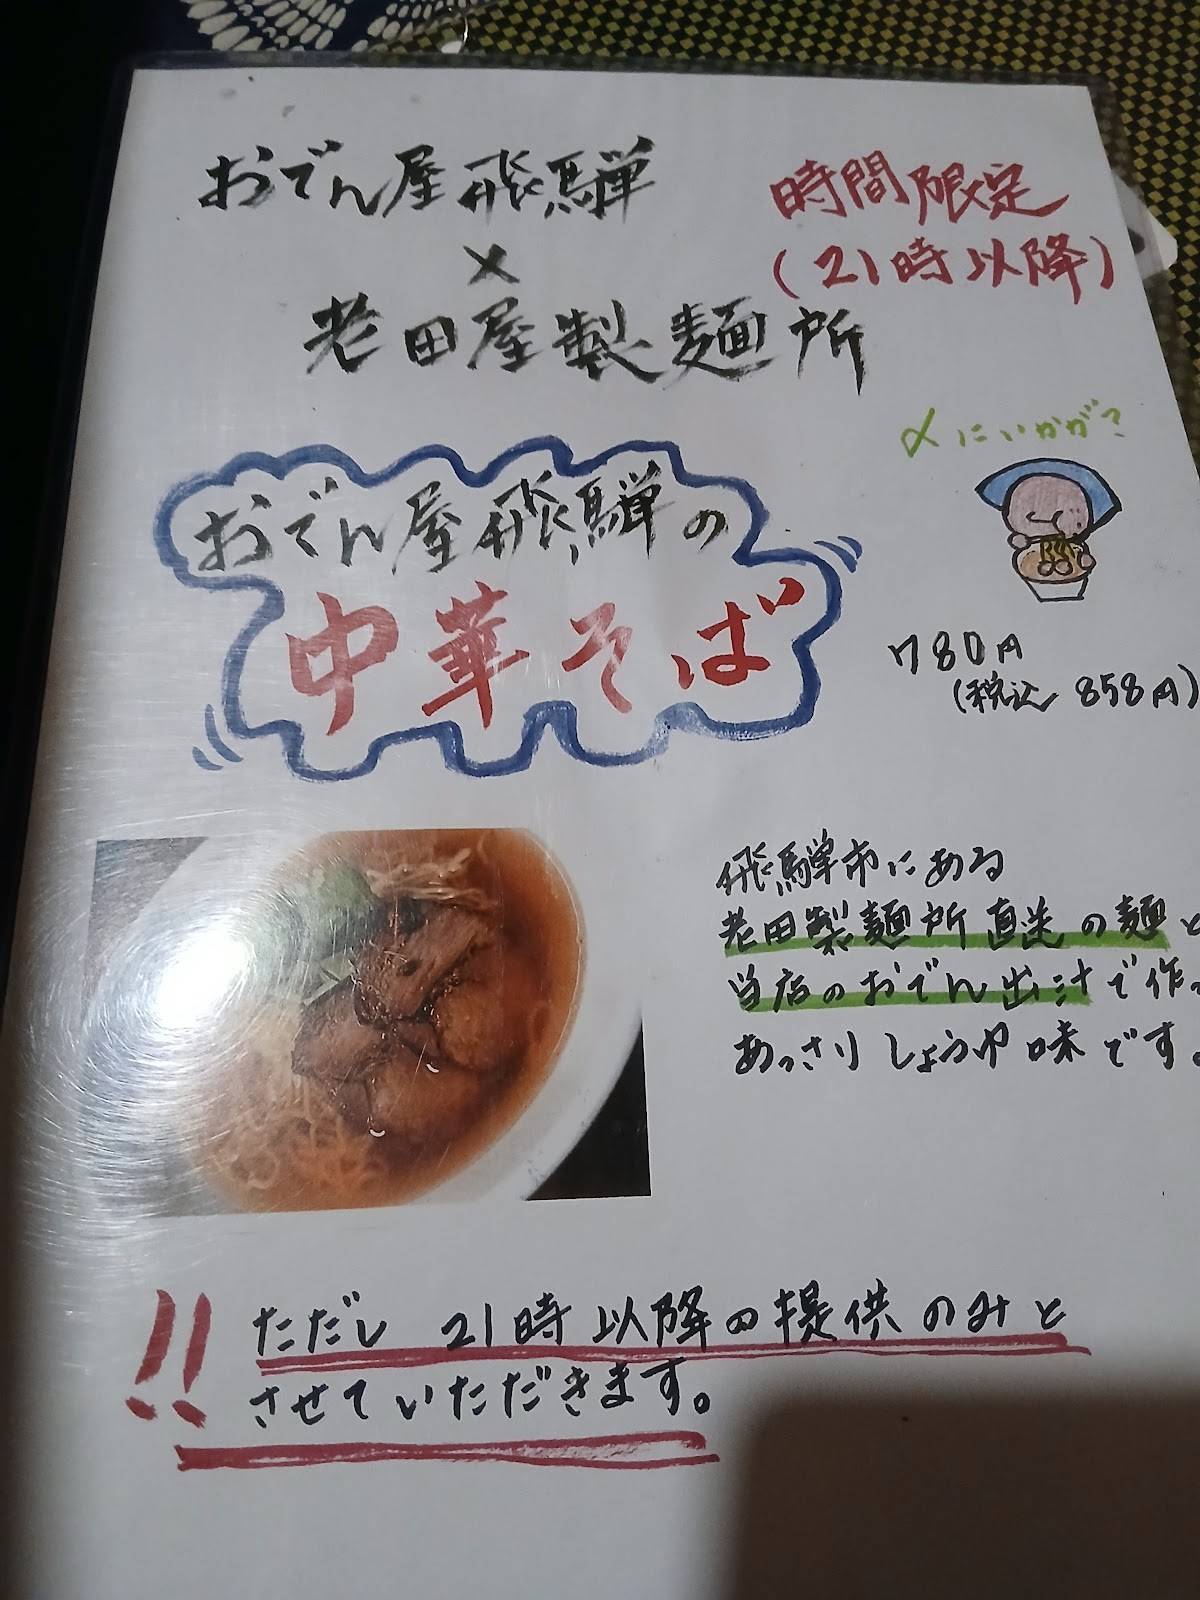 おでん屋飛騨
×
老田屋製麺所
時間限定
(21時以降)
〆にいかが?
おでん屋飛騨の
中華そば
780円
(税込 858円)
飛騨市にある
老田製麺所直送の麺と
当店のおでん出汁で作っ
あっさりしょうゆ味です。
!! ただし 21時以降の提供のみと
させていただきます。